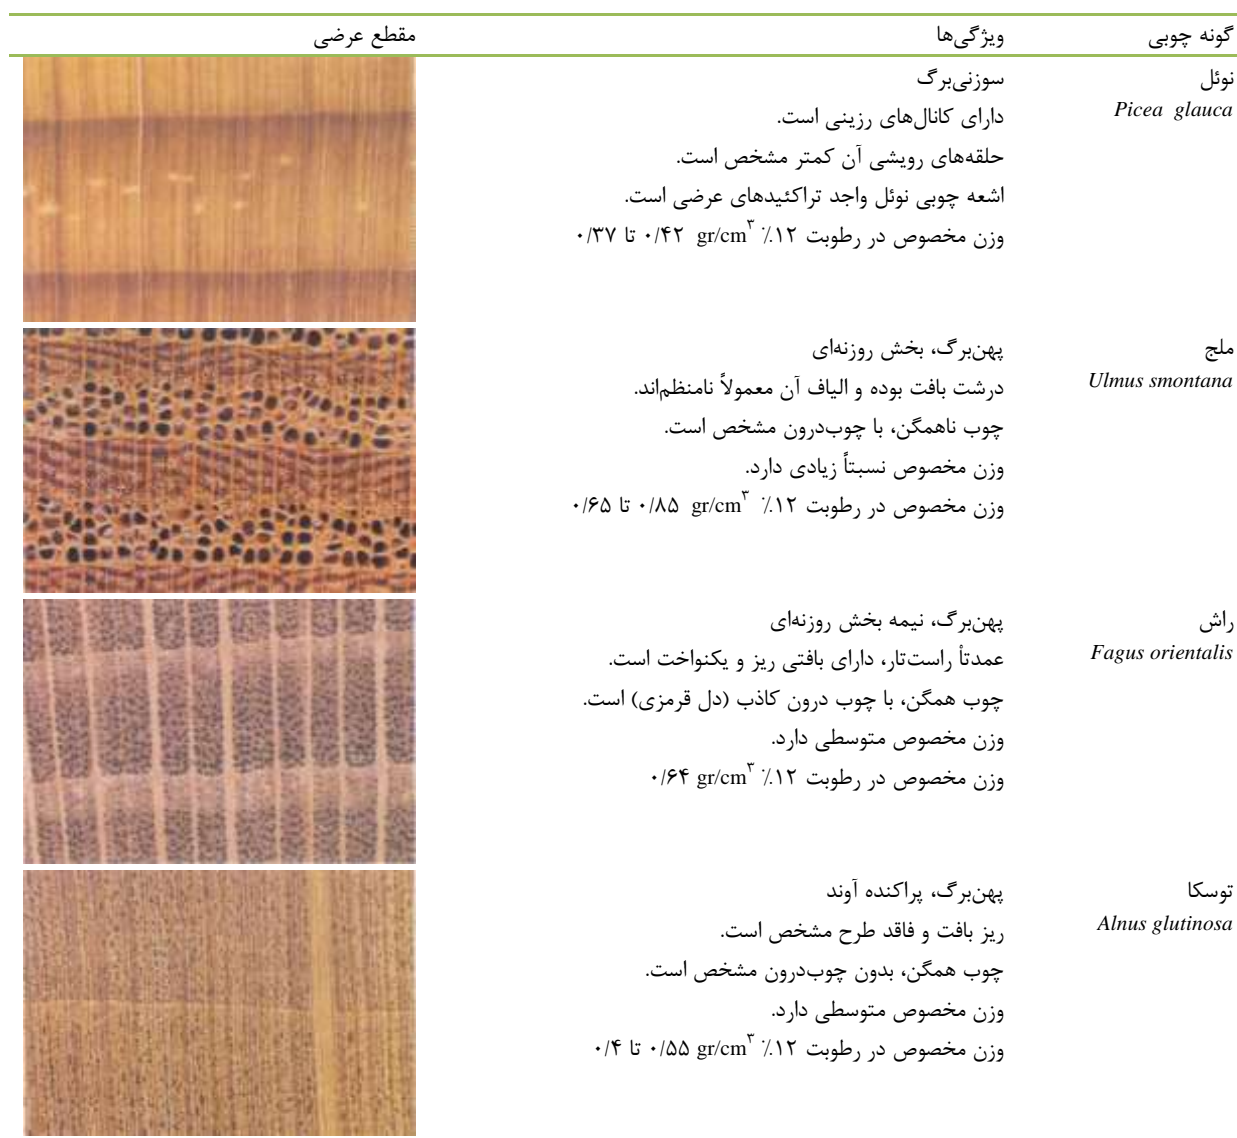 گونه چوبی ویژگی‌ها مقطع عرضی
نوئل سوزنی‌برگ
Picea glauca دارای کانال‌های رزینی است.
حلقه‌های رویشی آن کمتر مشخص است.
اشعه چوبی نوئل واجد تراکئیدهای عرضی است.
وزن مخصوص در رطوبت ۱۲٪ gr/cm³ ۰/۴۲ تا ۰/۳۷
ملج پهن‌برگ، بخش روزنه‌ای
Ulmus smontana درشت بافت بوده و الیاف آن معمولاً نامنظم‌اند.
چوب ناهمگن، با چوب‌درون مشخص است.
وزن مخصوص نسبتاً زیادی دارد.
وزن مخصوص در رطوبت ۱۲٪ gr/cm³ ۰/۸۵ تا ۰/۶۵
راش پهن‌برگ، نیمه بخش روزنه‌ای
Fagus orientalis عمدتاً راست‌تار، دارای بافتی ریز و یکنواخت است.
چوب همگن، با چوب درون کاذب (دل قرمزی) است.
وزن مخصوص متوسطی دارد.
وزن مخصوص در رطوبت ۱۲٪ gr/cm³ ۰/۶۴
توسکا پهن‌برگ، پراکنده آوند
Alnus glutinosa ریز بافت و فاقد طرح مشخص است.
چوب همگن، بدون چوب‌درون مشخص است.
وزن مخصوص متوسطی دارد.
وزن مخصوص در رطوبت ۱۲٪ gr/cm³ ۰/۵۵ تا ۰/۴